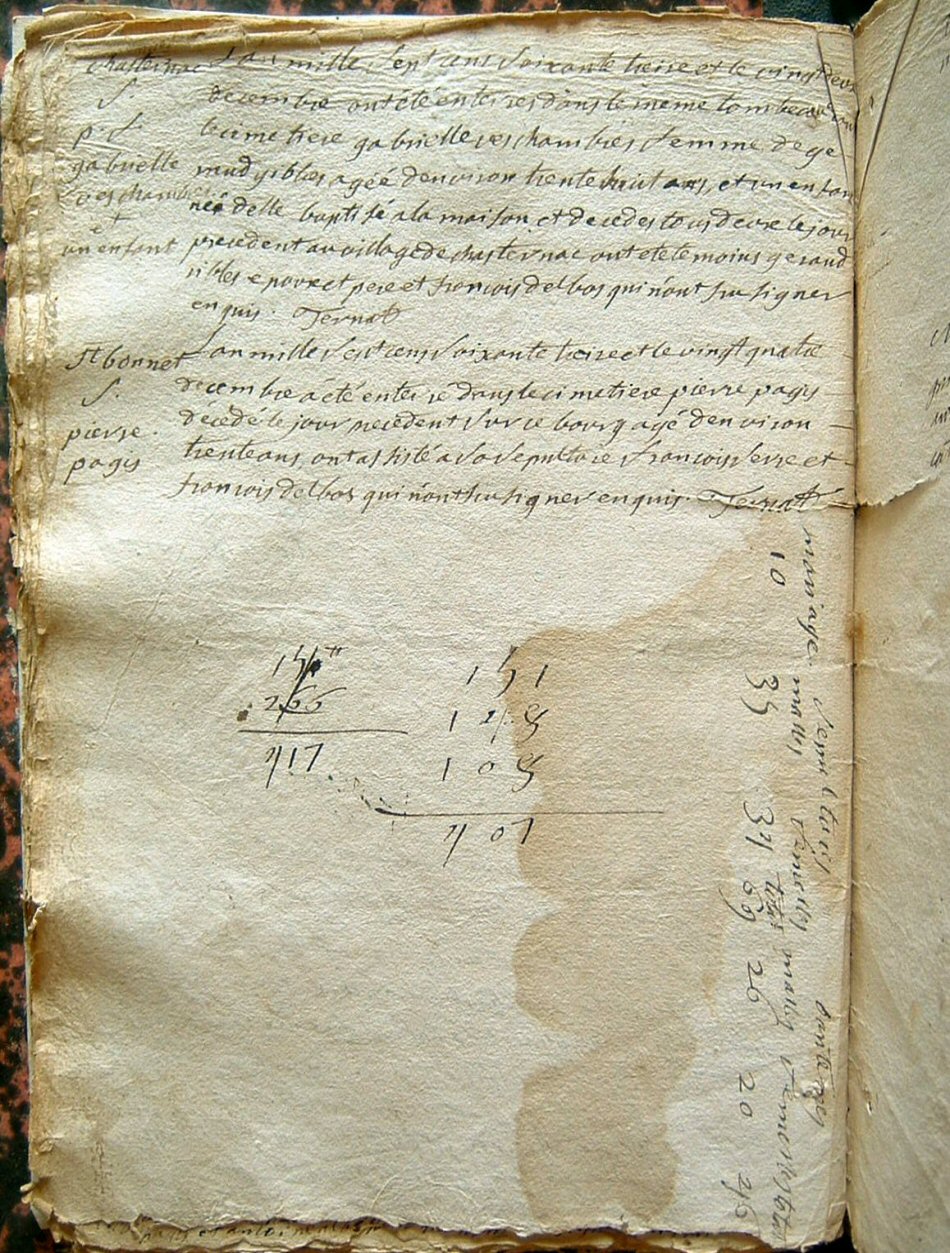 chasternac
S.
p. S.
gabrielle
veschambres
+
un enfant
Lan mille sept cens soixante treise et le vingt deux
decembre ont été enterres dans le meme tombeau
le cimetiere gabrielle veschambres femme de ge
raud ribbes agée denviron trente huit ans, et un enfan
né delle baptisé a la maison et decedes tous deux le jour
precedent au village de chasternac ont été temoins geraud
ribbes epoux et pere et francois delbos qui n'ont su signer
enquis. Ternat
St bonnet
S.
pierre
pagis
Lan mille sept cens soixante treise et le vingt quatre
decembre a été enterré dans le cimetiere pierre pagis
decedé le jour precedent sur ce bourg agé denviron
trente ans, ont assisté a sa sepulture francois serre et
francois delbos qui n'ont su signer enquis. Ternat
151
266
417
151
128
108
407
mariage males femelles males femelles total
sepultures
baptemes
10 35 34 69 26 20 46